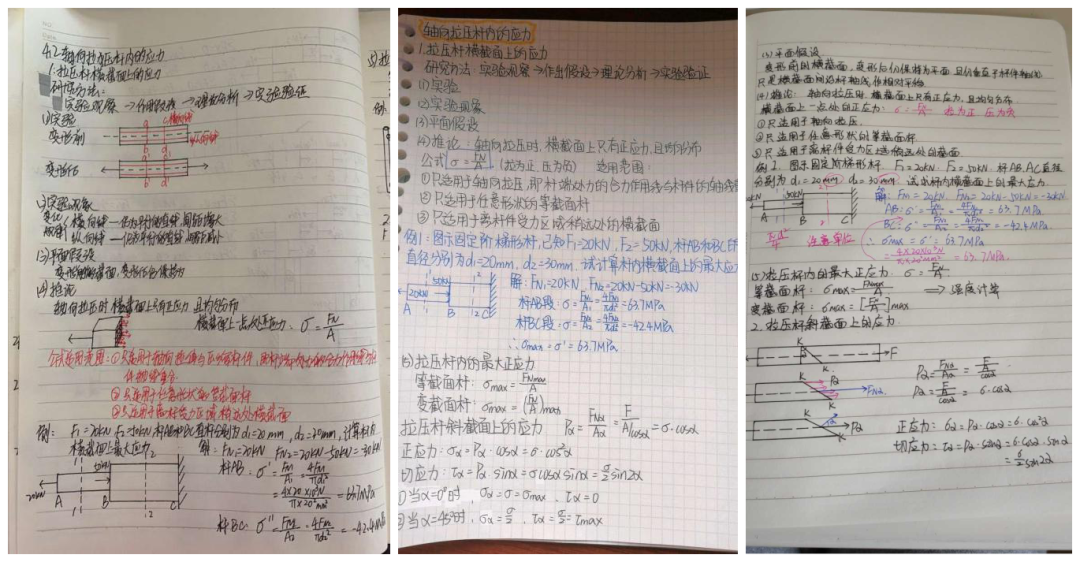 4.2 轴向拉压杆内的应力
1. 拉压杆横截面上的应力
研究方法:
实验观察→作出假设→理论分析→实验验证
(1)实验
变形前
变形后
(2)实验现象
(3)平面假设
(4)推论
轴向拉压时,横截面上只有正应力,且均匀分布
横截面上一点处正应力: σ=FN/A
③只适用于离杆受力区域稍远处横截面
例: F1=20kN F2=50kN 杆AB和BC直径分别为d1=20mm, d2=30mm, 计算杆内
横截面上最大应力
解: FN1=20kN FN2=20kN-50kN=-30kN
杆AB: σ'=FN1/A1=4FN1/πd1²
=4×20×10³N/π×20²mm²=63.7MPa
杆BC: σ''=FN2/A2=4FN2/πd2²=-42.4MPa
20kN
50kN
A B C
轴向拉压杆内的应力
1.拉压杆横截面上的应力
研究方法: 实验观察→作出假设→理论分析→实验验证
(1)实验
(2)实验现象
(3)平面假设
(4)推论: 轴向拉压时,横截面上只有正应力,且均匀分布
公式 σ=FN/A (拉为正,压为负) 适用范围:
①只适用于轴向拉压,即杆端外力的合力作用线与杆件的轴线重
②只适用于任意形状的等截面杆
③只适用于离杆件受力区域稍远处的横截面
例1:图示固定阶梯形杆,已知F1=20kN, F2=50kN,杆AB和BC的
直径分别为d1=20mm, d2=30mm. 试计算杆内横截面上的最大应力
解: FN1=20kN, FN2=20kN-50kN=-30kN
杆AB段: σ=FN1/A1=4FN1/πd1²=63.7MPa
杆BC段: σ=FN2/A2=4FN2/πd2²=-42.4MPa
∴σmax=σ'=63.7MPa
20kN
50kN
A B C
(5)拉压杆内的最大正应力
等截面杆: σmax=FNmax/A
变截面杆: σmax=(FN/A)max
拉压杆斜截面上的应力 Pα=FNα/Aα=F/A/cosα=σ·cosα
正应力: σα=Pα·cosα=σ·cos²α
切应力: τα=Pα·sinα=σcosαsinα=σ/2sin2α
①当α=0°时 σα=σ=σmax, τα=0
②当α=45°时, σα=σ/2, τα=σ/2=τmax
(3)平面假设
变形前的横截面,变形后仍保持为平面,且仍垂直于杆件轴线.
只是横截面间沿杆轴线作相对平移
(4)推论: 轴向拉压时,横截面上只有正应力,且均匀分布
横截面上一点处的正应力: σ=FN/A 拉为正 压为负
①只适用于轴向拉压.
②只适用于任意形状的等截面杆.
③只适用于离杆件受力区域稍远处的横截面
例1. 图示固定阶梯形杆. F1=20kN. F2=50kN. 杆AB、BC直径
分别为d1=20mm, d2=30mm. 试求杆内横截面上的最大应力.
解: FN1=20kN, FN2=20kN-50kN=-30kN
AB: σ'=FN1/A1=4FN1/πd1²=63.7MPa
BC: σ''=FN2/A2=4FN2/πd2²=-42.4MPa
∴ σmax=σ'=63.7MPa
注意单位
4×20×10³N/π×20²mm²=63.7MPa.
A B C
(5)拉压杆内的最大正应力: σ=FN/A
等截面杆: σmax=FNmax/A ⟹强度计算
变截面杆: σmax=[FN/A]max
2. 拉压杆斜截面上的应力.
K F
Pα=FNα/Aα=F/A/cosα
Pα=F/A/cosα=σ·cosα
K FNα
K Pα
正应力: σα=Pα·cosα=σ·cos²α
切应力: τα=Pα·sinα=σ·cosα·sinα
=σ/2sin2α